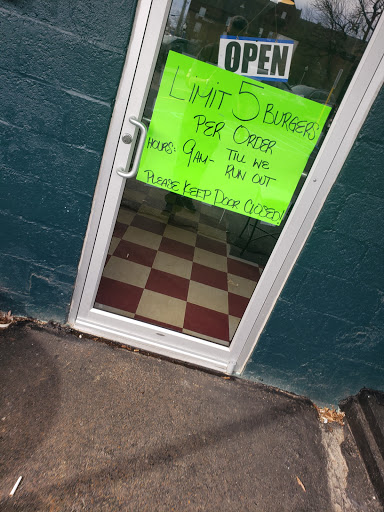 OPEN
LIMIT 5 BURGERS
PER ORDER
HOURS: 9AM- TILL WE
RUN OUT
PLEASE KEEP DOOR CLOSED!